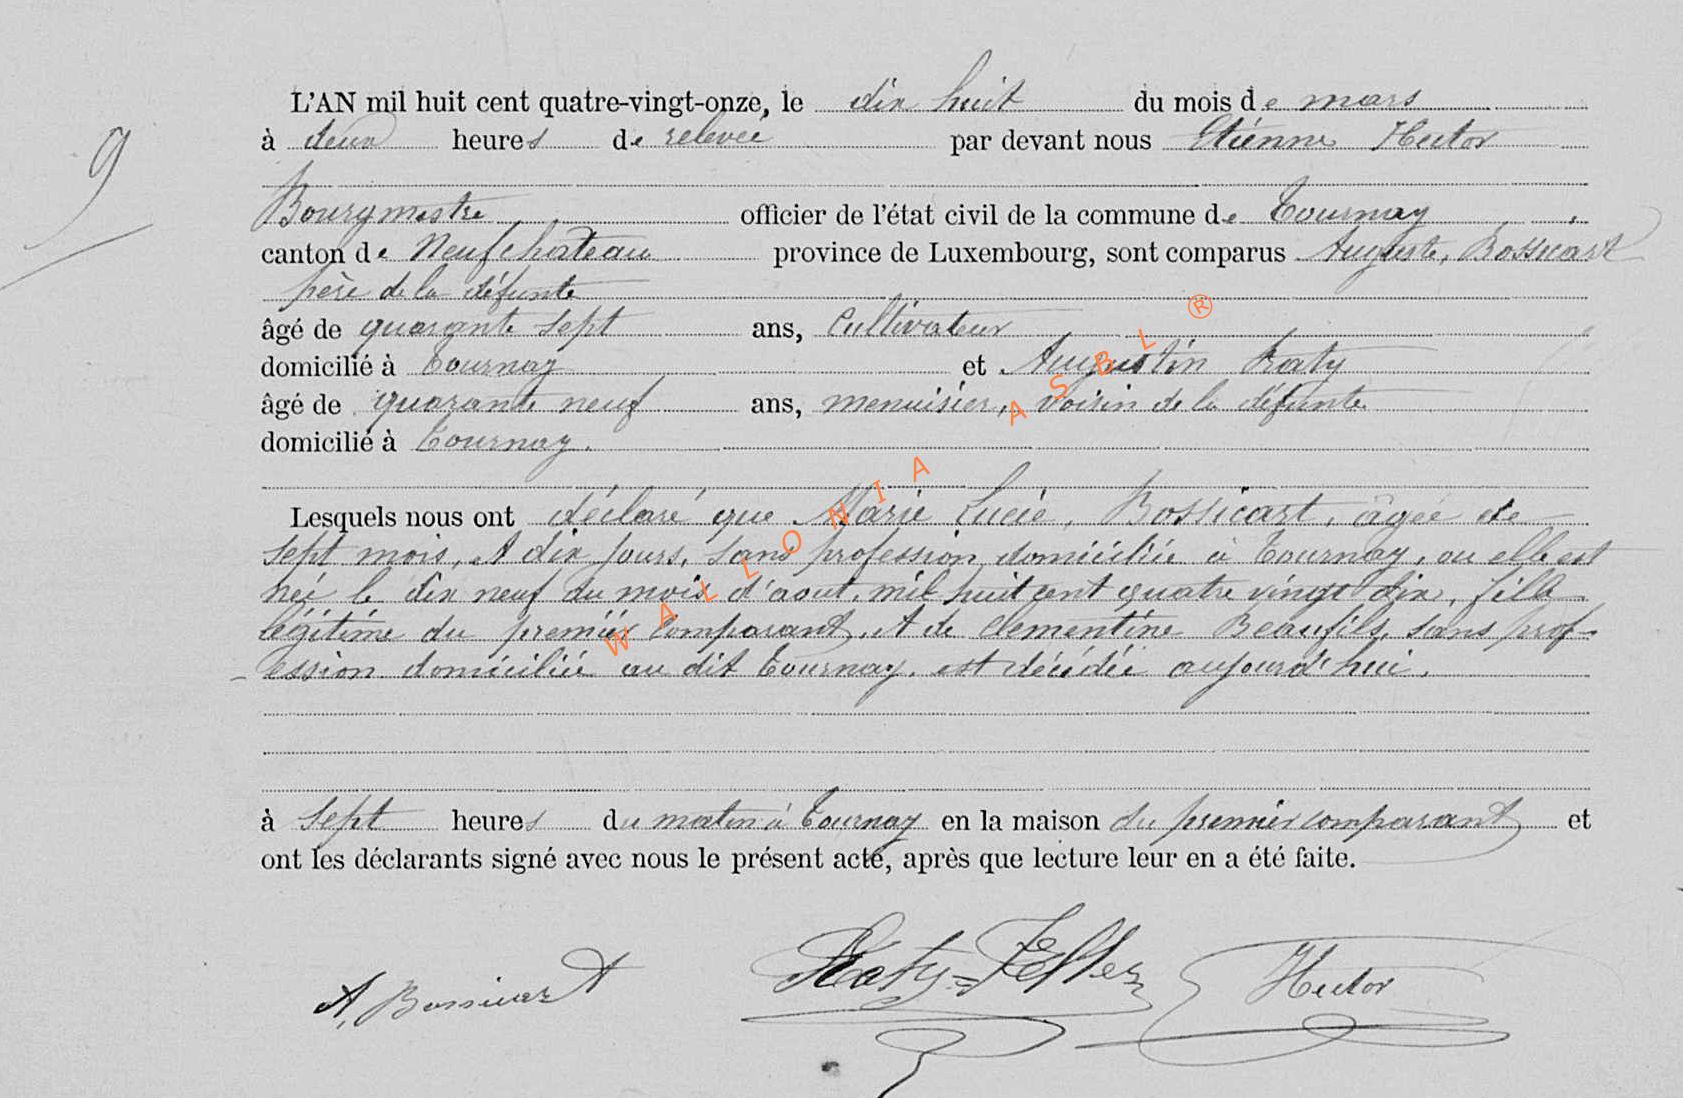 9
L'AN mil huit cent quatre-vingt-onze, le dix huit du mois de mars
à deux heures de relevée par devant nous Etiénne Hector
Bourgmestre officier de l'état civil de la commune de Tournay
canton de Neufchateau province de Luxembourg, sont comparus Auguste, Bossicart
père de la défunte
âgé de quarante sept ans, Cultivateur
domicilié à Tournay et Augustin Raty
âgé de quarante neuf ans, menuisier, voisin de la défunte
domicilié à Tournay.
Lesquels nous ont déclaré que Marie Lucie, Bossicart, âgée de
sept mois, et dix jours, sans profession, domiciliée à Tournay, ou elle est
née le dix neuf du mois d'aout, mil huit cent quatre vingt dix, fille
légitime du premier comparant, et de Clementine Beaufils, sans prof-
ession domiciliée au dit Tournay, est décédée aujourd'hui.
à sept heures du matin à Tournay en la maison du premier comparant et
ont les déclarants signé avec nous le présent acte, après que lecture leur en a été faite.
A, Bossicart Raty= Hector
WALLONIA ASBL ®